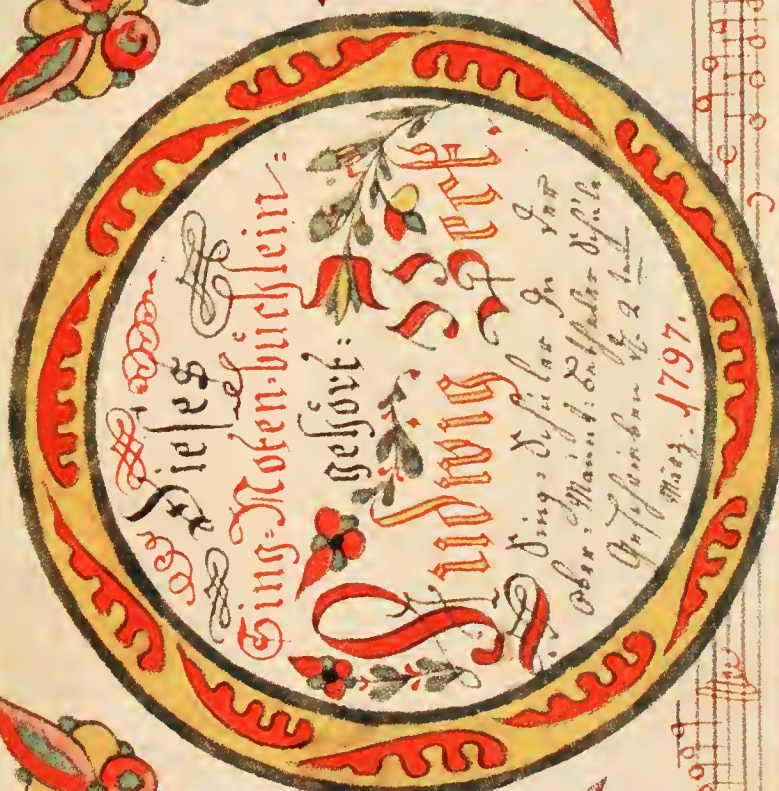 Dieses
Sing=Noten=büchlein=
gehört=
Ludwig
Sing=Schüler In der
Ober=Maunt=Bethler Schule
Geschrieben d. 2ten
März. 1797.